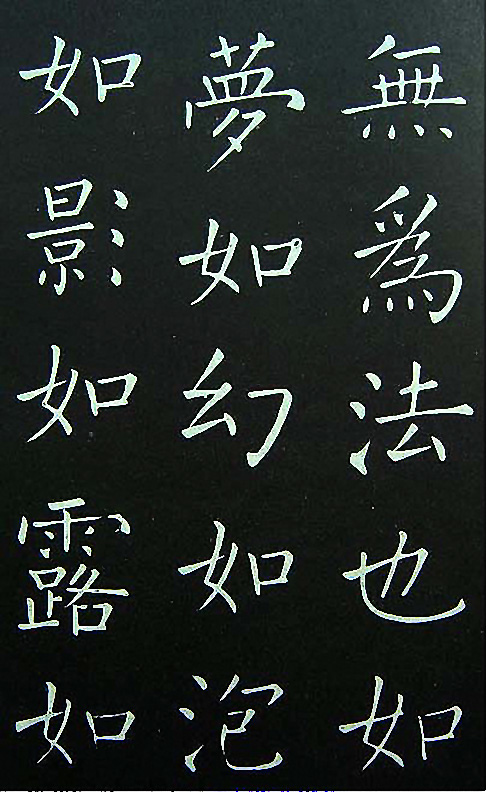 無爲法也如
夢如幻如泡
如影如露如